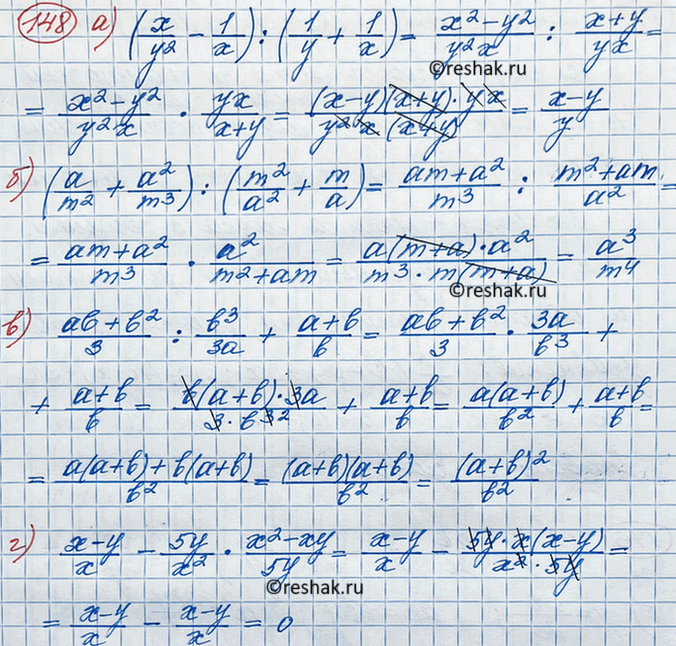 148 а) (x/y² - 1/x) : (1/y + 1/x) = (x² - y²)/(y²x) : (x+y)/(yx) =
©reshak.ru
= (x² - y²)/(y²x) · (yx)/(x+y) = ((x-y)(x+y)·yx)/(y²x(x+y)) = (x-y)/y
б) (a/m² + a²/m³) : (m²/a² + m/a) = (am+a²)/m³ : (m²+am)/a² =
= (am+a²)/m³ · a²/(m²+am) = (a(m+a)·a²)/(m³·m(m+a)) = a³/m⁴
©reshak.ru
в) (ab+b²)/3 : b³/3a + (a+b)/b = (ab+b²)/3 · 3a/b³ +
+ (a+b)/b = (b(a+b)·3a)/(3·b³ ²) + (a+b)/b = a(a+b)/b² + (a+b)/b =
= (a(a+b)+b(a+b))/b² = (a+b)(a+b)/b² = (a+b)²/b²
г) (x-y)/x - 5y/x² · (x²-xy)/5y = (x-y)/x - (5y·x(x-y))/(x²·5y) =
©reshak.ru
= (x-y)/x - (x-y)/x = 0